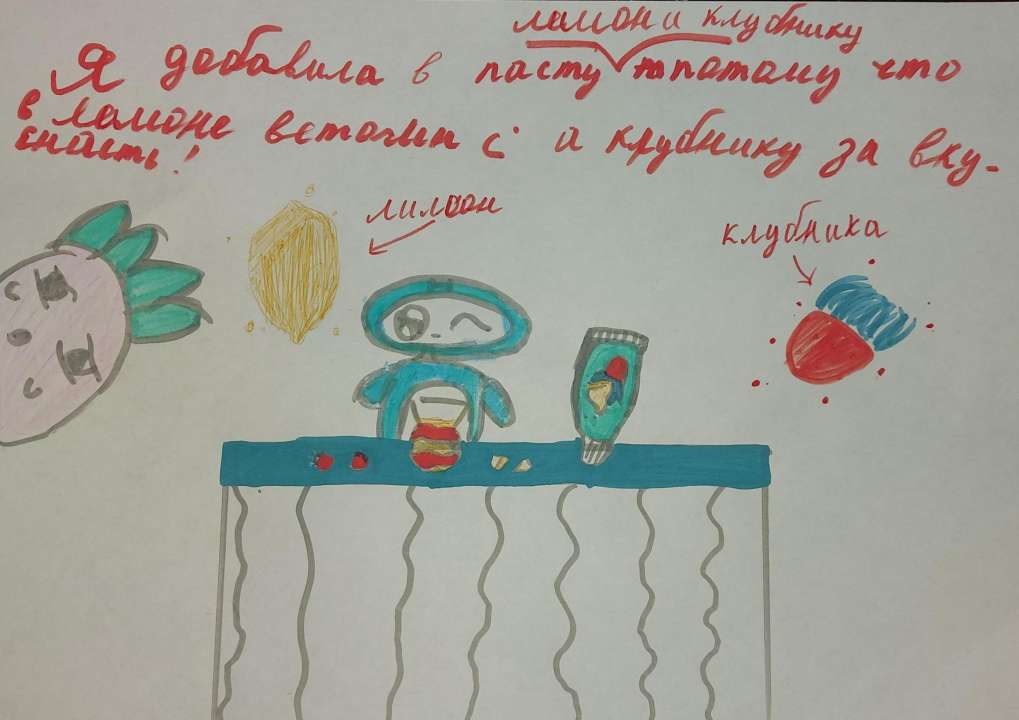 ламон и клубнику
Я добавила в пасту потому что
в ламоне веточин с а крубнику за вку-
сность!
лилоон
клубника